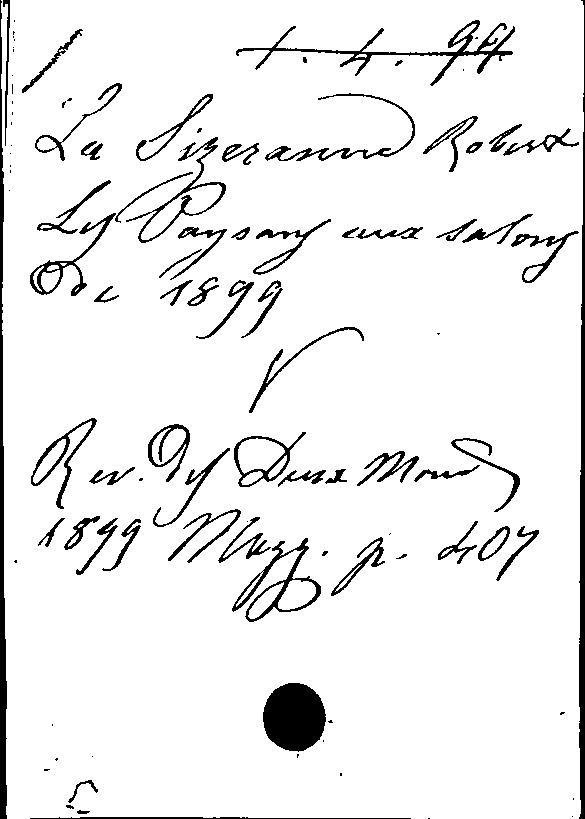 1. 4. 99
La Sizeranne Robert
Les Paysans aux salons
de 1899
V
Rev. des Deux Mond
1899 p. 407